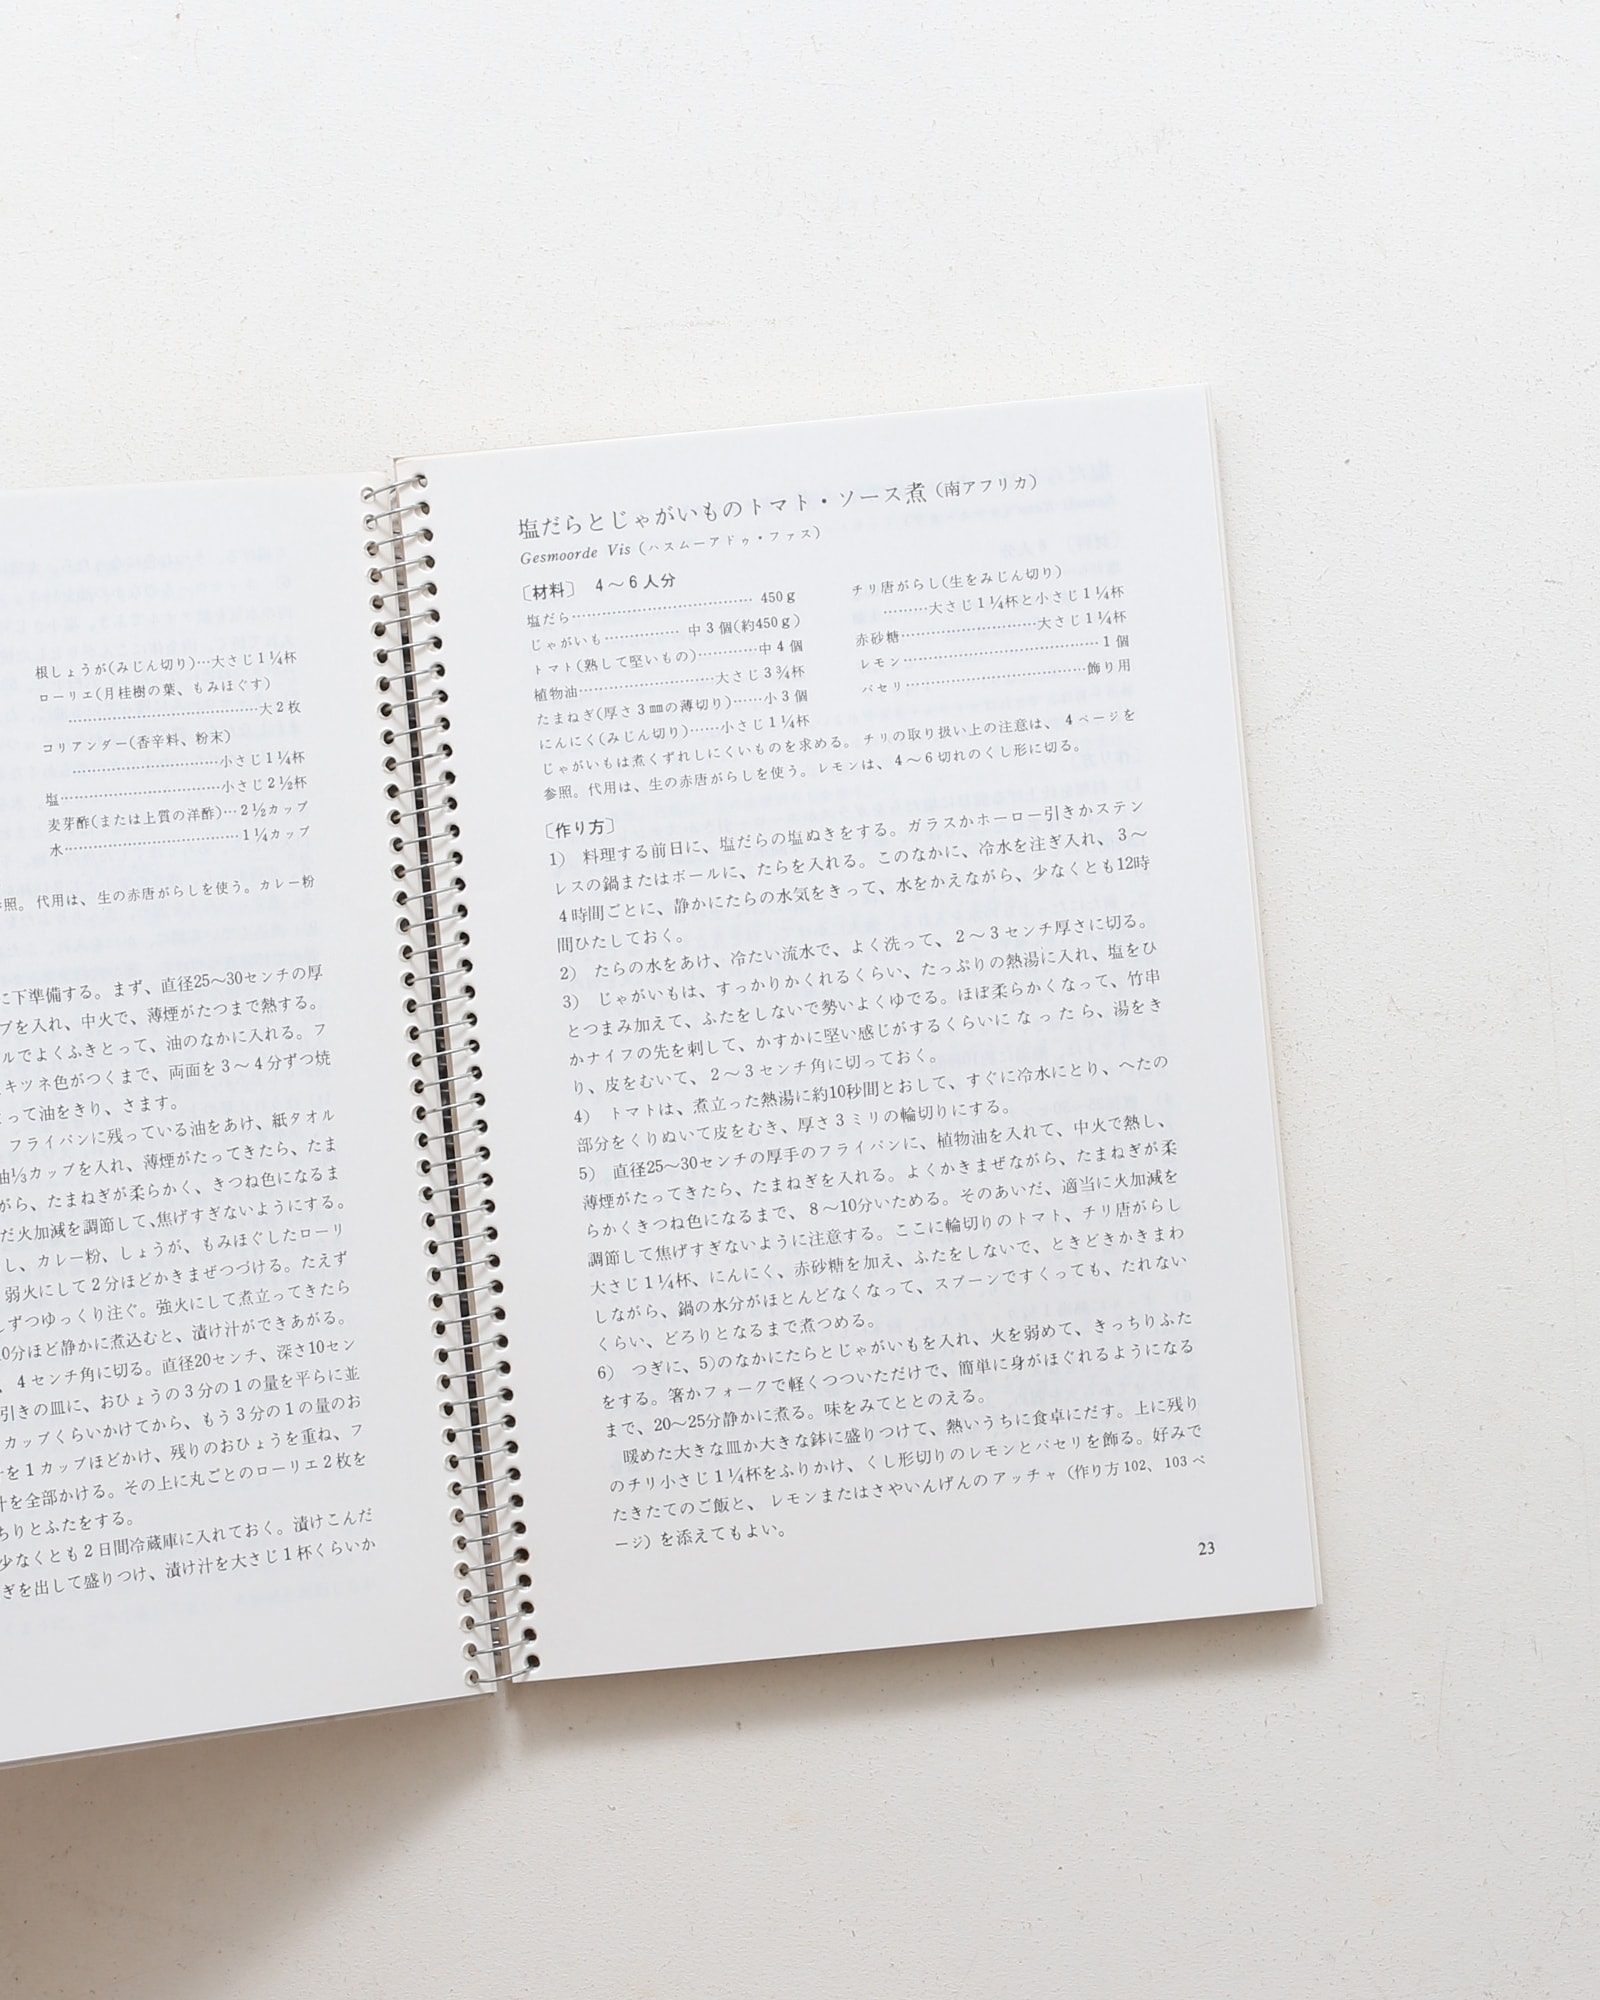 根しょうが(みじん切り)…大さじ1¼杯
ローリエ(月桂樹の葉、もみほぐす)
…………………………………大2枚
コリアンダー(香辛料、粉末)
…………………………小さじ1¼杯
塩……………………………小さじ2½杯
麦芽酢(または上質の洋酢)…2½カップ
水………………………………1¼カップ
照。代用は、生の赤唐がらしを使う。カレー粉
に下準備する。まず、直径25〜30センチの厚
プを入れ、中火で、薄煙がたつまで熱する。
ルでよくふきとって、油のなかに入れる。フ
キツネ色がつくまで、両面を3〜4分ずつ焼
って油をきり、さます。
フライパンに残っている油をあけ、紙タオル
油⅓カップを入れ、薄煙がたってきたら、たま
がら、たまねぎが柔らかく、きつね色になるま
だ火加減を調節して、焦げすぎないようにする。
し、カレー粉、しょうが、もみほぐしたローリ
弱火にして2分ほどかきまぜつづける。たえず
しずつゆっくり注ぐ。強火にして煮立ってきたら
0分ほど静かに煮込むと、漬け汁ができあがる。
、4センチ角に切る。直径20センチ、深さ10セン
引きの皿に、おひょうの3分の1の量を平らに並
カップくらいかけてから、もう3分の1の量のお
を1カップほどかけ、残りのおひょうを重ね、フ
汁を全部かける。その上に丸ごとのローリエ2枚を
ちりとふたをする。
少なくとも2日間冷蔵庫に入れておく。漬けこんだ
ぎを出して盛りつけ、漬け汁を大さじ1杯くらいか
塩だらとじゃがいものトマト・ソース煮(南アフリカ)
Gesmoorde Vis(ハスムーアドゥ・ファス)
〔材料〕 4〜6人分
塩だら………………………………450g
じゃがいも……………中3個(約450g)
トマト(熟して堅いもの)…………中4個
植物油………………………大さじ3¾杯
たまねぎ(厚さ3㎜の薄切り)……小3個
にんにく(みじん切り)……小さじ1¼杯
チリ唐がらし(生をみじん切り)
………大さじ1¼杯と小さじ1¼杯
赤砂糖………………………大さじ1¼杯
レモン…………………………………1個
パセリ………………………………飾り用
じゃがいもは煮くずれしにくいものを求める。チリの取り扱い上の注意は、4ページを
参照。代用は、生の赤唐がらしを使う。レモンは、4〜6切れのくし形に切る。
〔作り方〕
1) 料理する前日に、塩だらの塩ぬきをする。ガラスかホーロー引きかステン
レスの鍋またはボールに、たらを入れる。このなかに、冷水を注ぎ入れ、3〜
4時間ごとに、静かにたらの水気をきって、水をかえながら、少なくとも12時
間ひたしておく。
2) たらの水をあけ、冷たい流水で、よく洗って、2〜3センチ厚さに切る。
3) じゃがいもは、すっかりかくれるくらい、たっぷりの熱湯に入れ、塩をひ
とつまみ加えて、ふたをしないで勢いよくゆでる。ほぼ柔らかくなって、竹串
かナイフの先を刺して、かすかに堅い感じがするくらいになったら、湯をき
り、皮をむいて、2〜3センチ角に切っておく。
4) トマトは、煮立った熱湯に約10秒間とおして、すぐに冷水にとり、へたの
部分をくりぬいて皮をむき、厚さ3ミリの輪切りにする。
5) 直径25〜30センチの厚手のフライパンに、植物油を入れて、中火で熱し、
薄煙がたってきたら、たまねぎを入れる。よくかきまぜながら、たまねぎが柔
らかくきつね色になるまで、8〜10分いためる。そのあいだ、適当に火加減を
調節して焦げすぎないように注意する。ここに輪切りのトマト、チリ唐がらし
大さじ1¼杯、にんにく、赤砂糖を加え、ふたをしないで、ときどきかきまわ
しながら、鍋の水分がほとんどなくなって、スプーンですくっても、たれない
くらい、どろりとなるまで煮つめる。
6) つぎに、5)のなかにたらとじゃがいもを入れ、火を弱めて、きっちりふた
をする。箸かフォークで軽くつついただけで、簡単に身がほぐれるようになる
まで、20〜25分静かに煮る。味をみてととのえる。
暖めた大きな皿か大きな鉢に盛りつけて、熱いうちに食卓にだす。上に残り
のチリ小さじ1¼杯をふりかけ、くし形切りのレモンとパセリを飾る。好みで
たきたてのご飯と、レモンまたはさやいんげんのアッチャ(作り方102、103ペ
ージ)を添えてもよい。
23